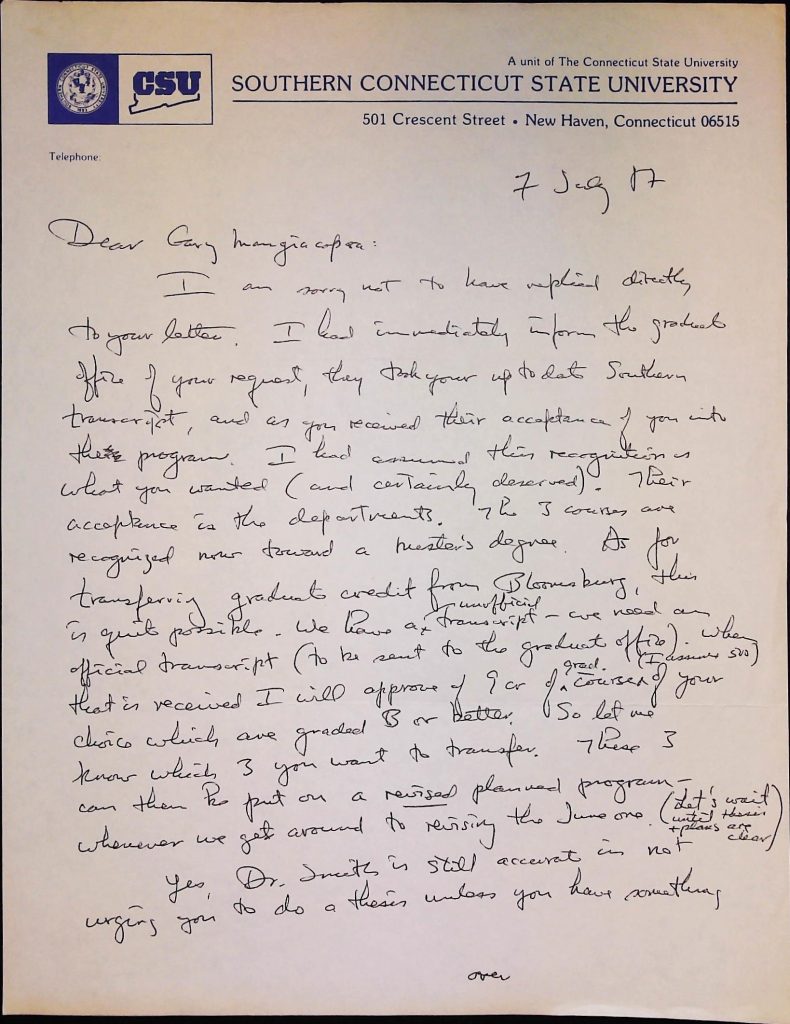 CSU
A unit of The Connecticut State University
SOUTHERN CONNECTICUT STATE UNIVERSITY
501 Crescent Street • New Haven, Connecticut 06515
Telephone:
7 July 87
Dear Gary Mangiacopra:
I am sorry not to have replied directly
to your letter. I had immediately inform the graduate
office of your request, they took your up to date Southern
transcript, and as you received their acceptance of you into
the program. I had assumed this recognition is
what you wanted (and certainly deserved). Their
acceptance is the departments. The 3 courses are
recognized now toward a master's degree. As for
transferring graduate credit from Bloomsburg, this
is quite possible. We have a unofficial transcript – we need an
official transcript (to be sent to the graduate office). When
that is received I will approve of 9 cr of grad. courses (I assume 500) of your
choice which are graded B or better. So let me
know which 3 you want to transfer. These 3
can then be put on a revised planned program –
whenever we get around to revising the June one. (Let's wait
until thesis
+ plans are
clear)
Yes, Dr. Smith is still accurat in not
urging you to do a thesis unless you have something
over